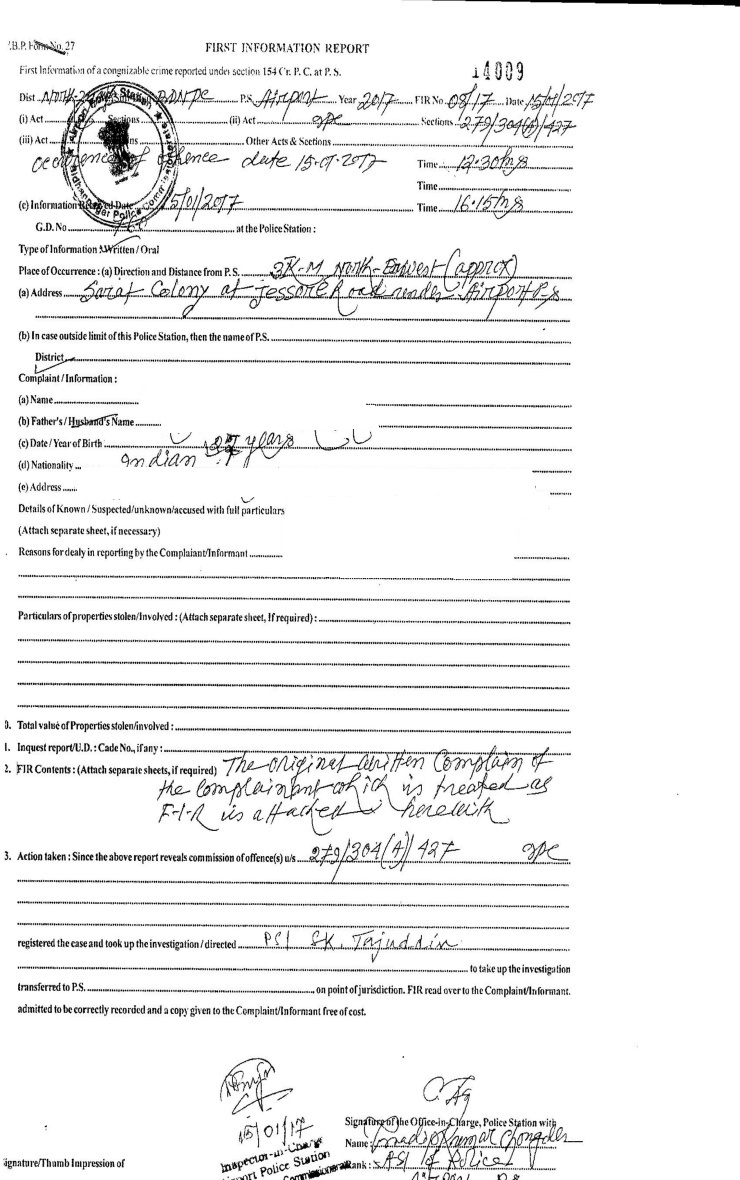 .B.P. Form No. 27
FIRST INFORMATION REPORT
First Information of a congnizable crime reported under section 154 Cr. P. C. at P. S.
14009
Dist. North-2 BDNPC P.S. Airport Year 2017 FIR No. 08/17 Date 15/01/2017
(i) Act Sections (ii) Act IPC Sections 279/304(A)/427
(iii) Act Other Acts & Sections
occurrence of offence date 15-01-2017 Time 12.30 hrs
Time
(c) Information Received Date 15/01/2017 Time 16.15 hrs
G.D. No at the Police Station :
Type of Information : Written / Oral
Place of Occurrence : (a) Direction and Distance from P.S. 3K-M North- (approx)
(a) Address Sarat Colony at Jessore Road under Airport P.S
(b) In case outside limit of this Police Station, then the name of P.S.
District
Complaint / Information :
(a) Name
(b) Father's / Husband's Name
(c) Date / Year of Birth 27 years
(d) Nationality ... Indian
(e) Address
Details of Known / Suspected/unknown/accused with full particulars
(Attach separate sheet, if necessary)
Reasons for dealy in reporting by the Complaiant/Informant
Particulars of properties stolen/Involved : (Attach separate sheet, If required) :
0. Total value of Properties stolen/involved :
1. Inquest report/U.D. : Cade No., if any :
2. FIR Contents : (Attach separate sheets, if required) The original written Complain of
the complainant which is treated as
F-I-R is attached herewith
3. Action taken : Since the above report reveals commission of offence(s) u/s 279/304(A)/427 IPC
registered the case and took up the investigation / directed PSI SK. Tajuddin
to take up the investigation
transferred to P.S. on point of jurisdiction. FIR read over to the Complaint/Informant.
admitted to be correctly recorded and a copy given to the Complaint/Informant free of cost.
15/01/17
Signature of the Office-in-Charge, Police Station with
Inspector-in-Charge
Name : Kumar
Airport Police Station
Rank : ASI of Police
ignature/Thumb Impression of